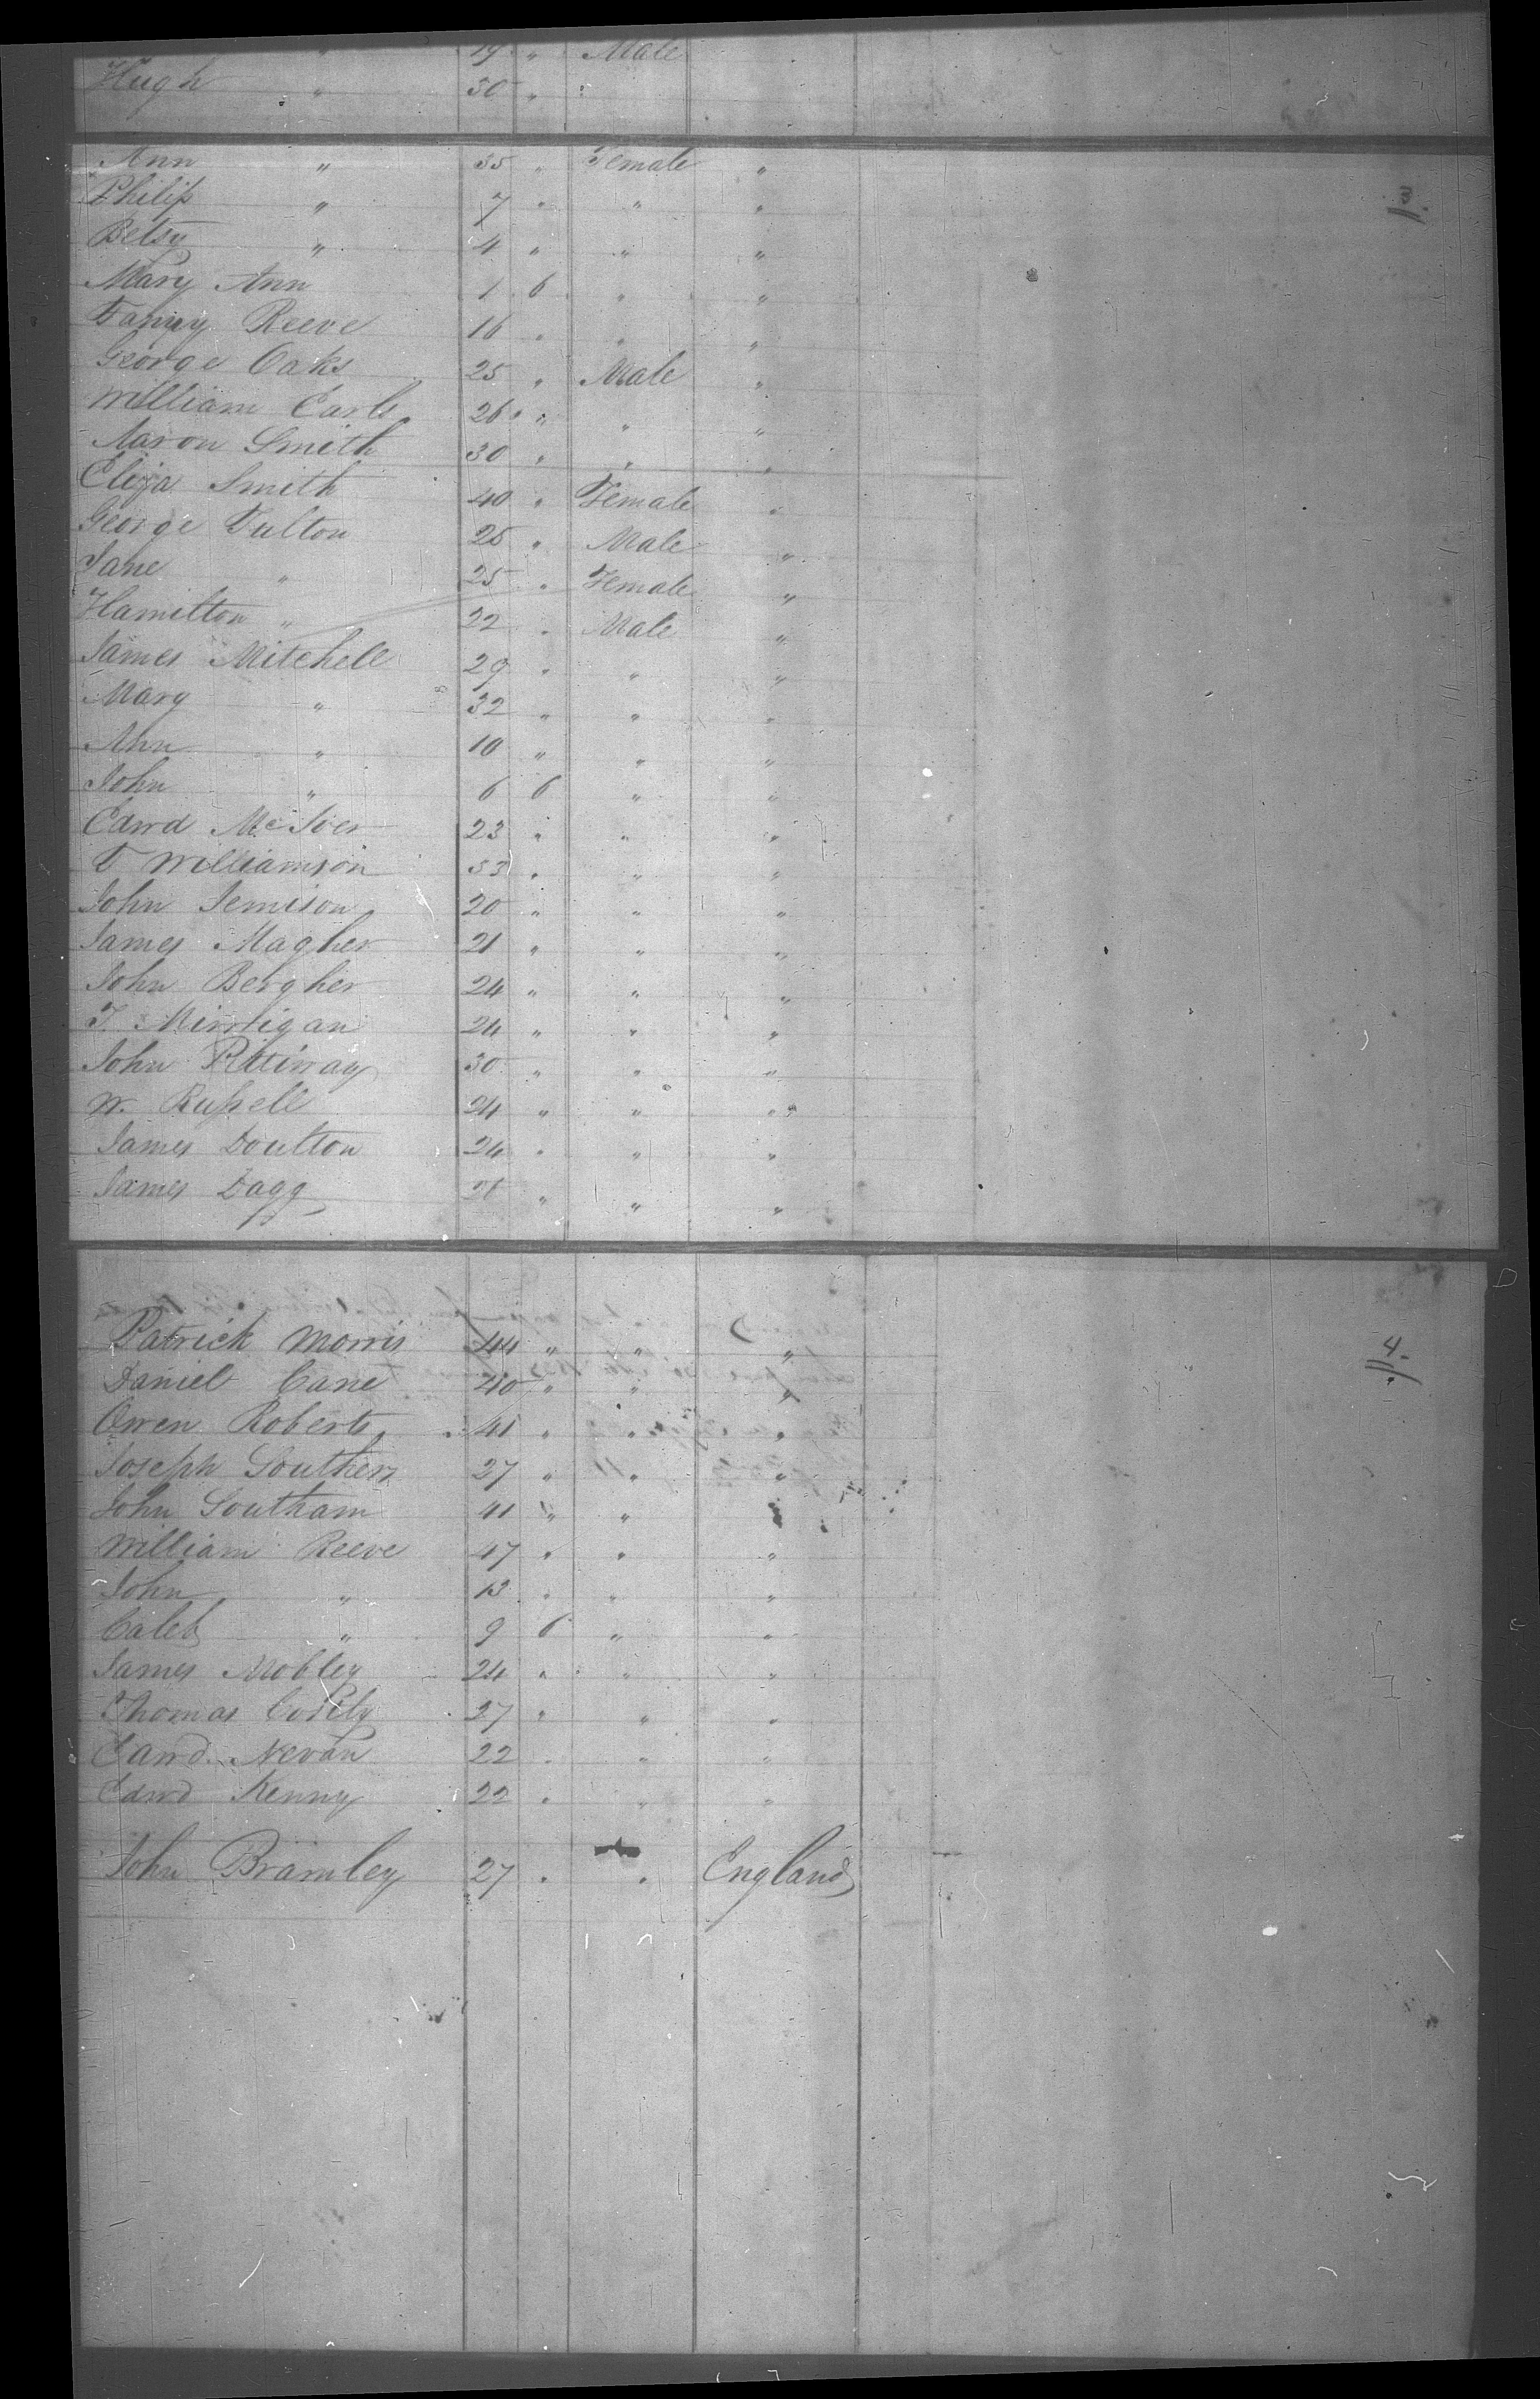 " 19 " Male
Hugh " 30 "
Ann " 35 " Female "
3
Philip " 7 " " "
Betsy " 4 " " "
Mary Ann 1 6 " "
Fanny Reeve 16 " " "
George Oaks 25 " Male "
William Earls 26 " " "
Aaron Smith 30 " " "
Eliza Smith 40 " Female "
George Fulton 25 " Male "
Jane " 25 " Female "
Hamilton " 22 " Male "
James Mitchell 29 " " "
Mary " 32 " " "
Ann " 10 " " "
John " 6 6 " "
Edwd McIver 23 " " "
F Williamson 33 " " "
John Jemison 20 " " "
James Magher 21 " " "
John Bergher 24 " " "
24 " " "
John 30 " " "
W. Russell 24 " " "
James Doulton 24 " " "
James Dagg " " "
Patrick Morris 44 " " "
4
Daniel Cane 40 " " "
Owen Roberts 41 " " "
Joseph Southern 27 " " "
John Southam 41 " " "
William Reeve 47 " " "
John " 13 " " "
Caleb " 9 6 " "
James Mobley 24 " " "
Thomas 27 " " "
Edwd Nevan 22 " " "
Edwd Kenny 22 " " "
John Bramley 27 " " England